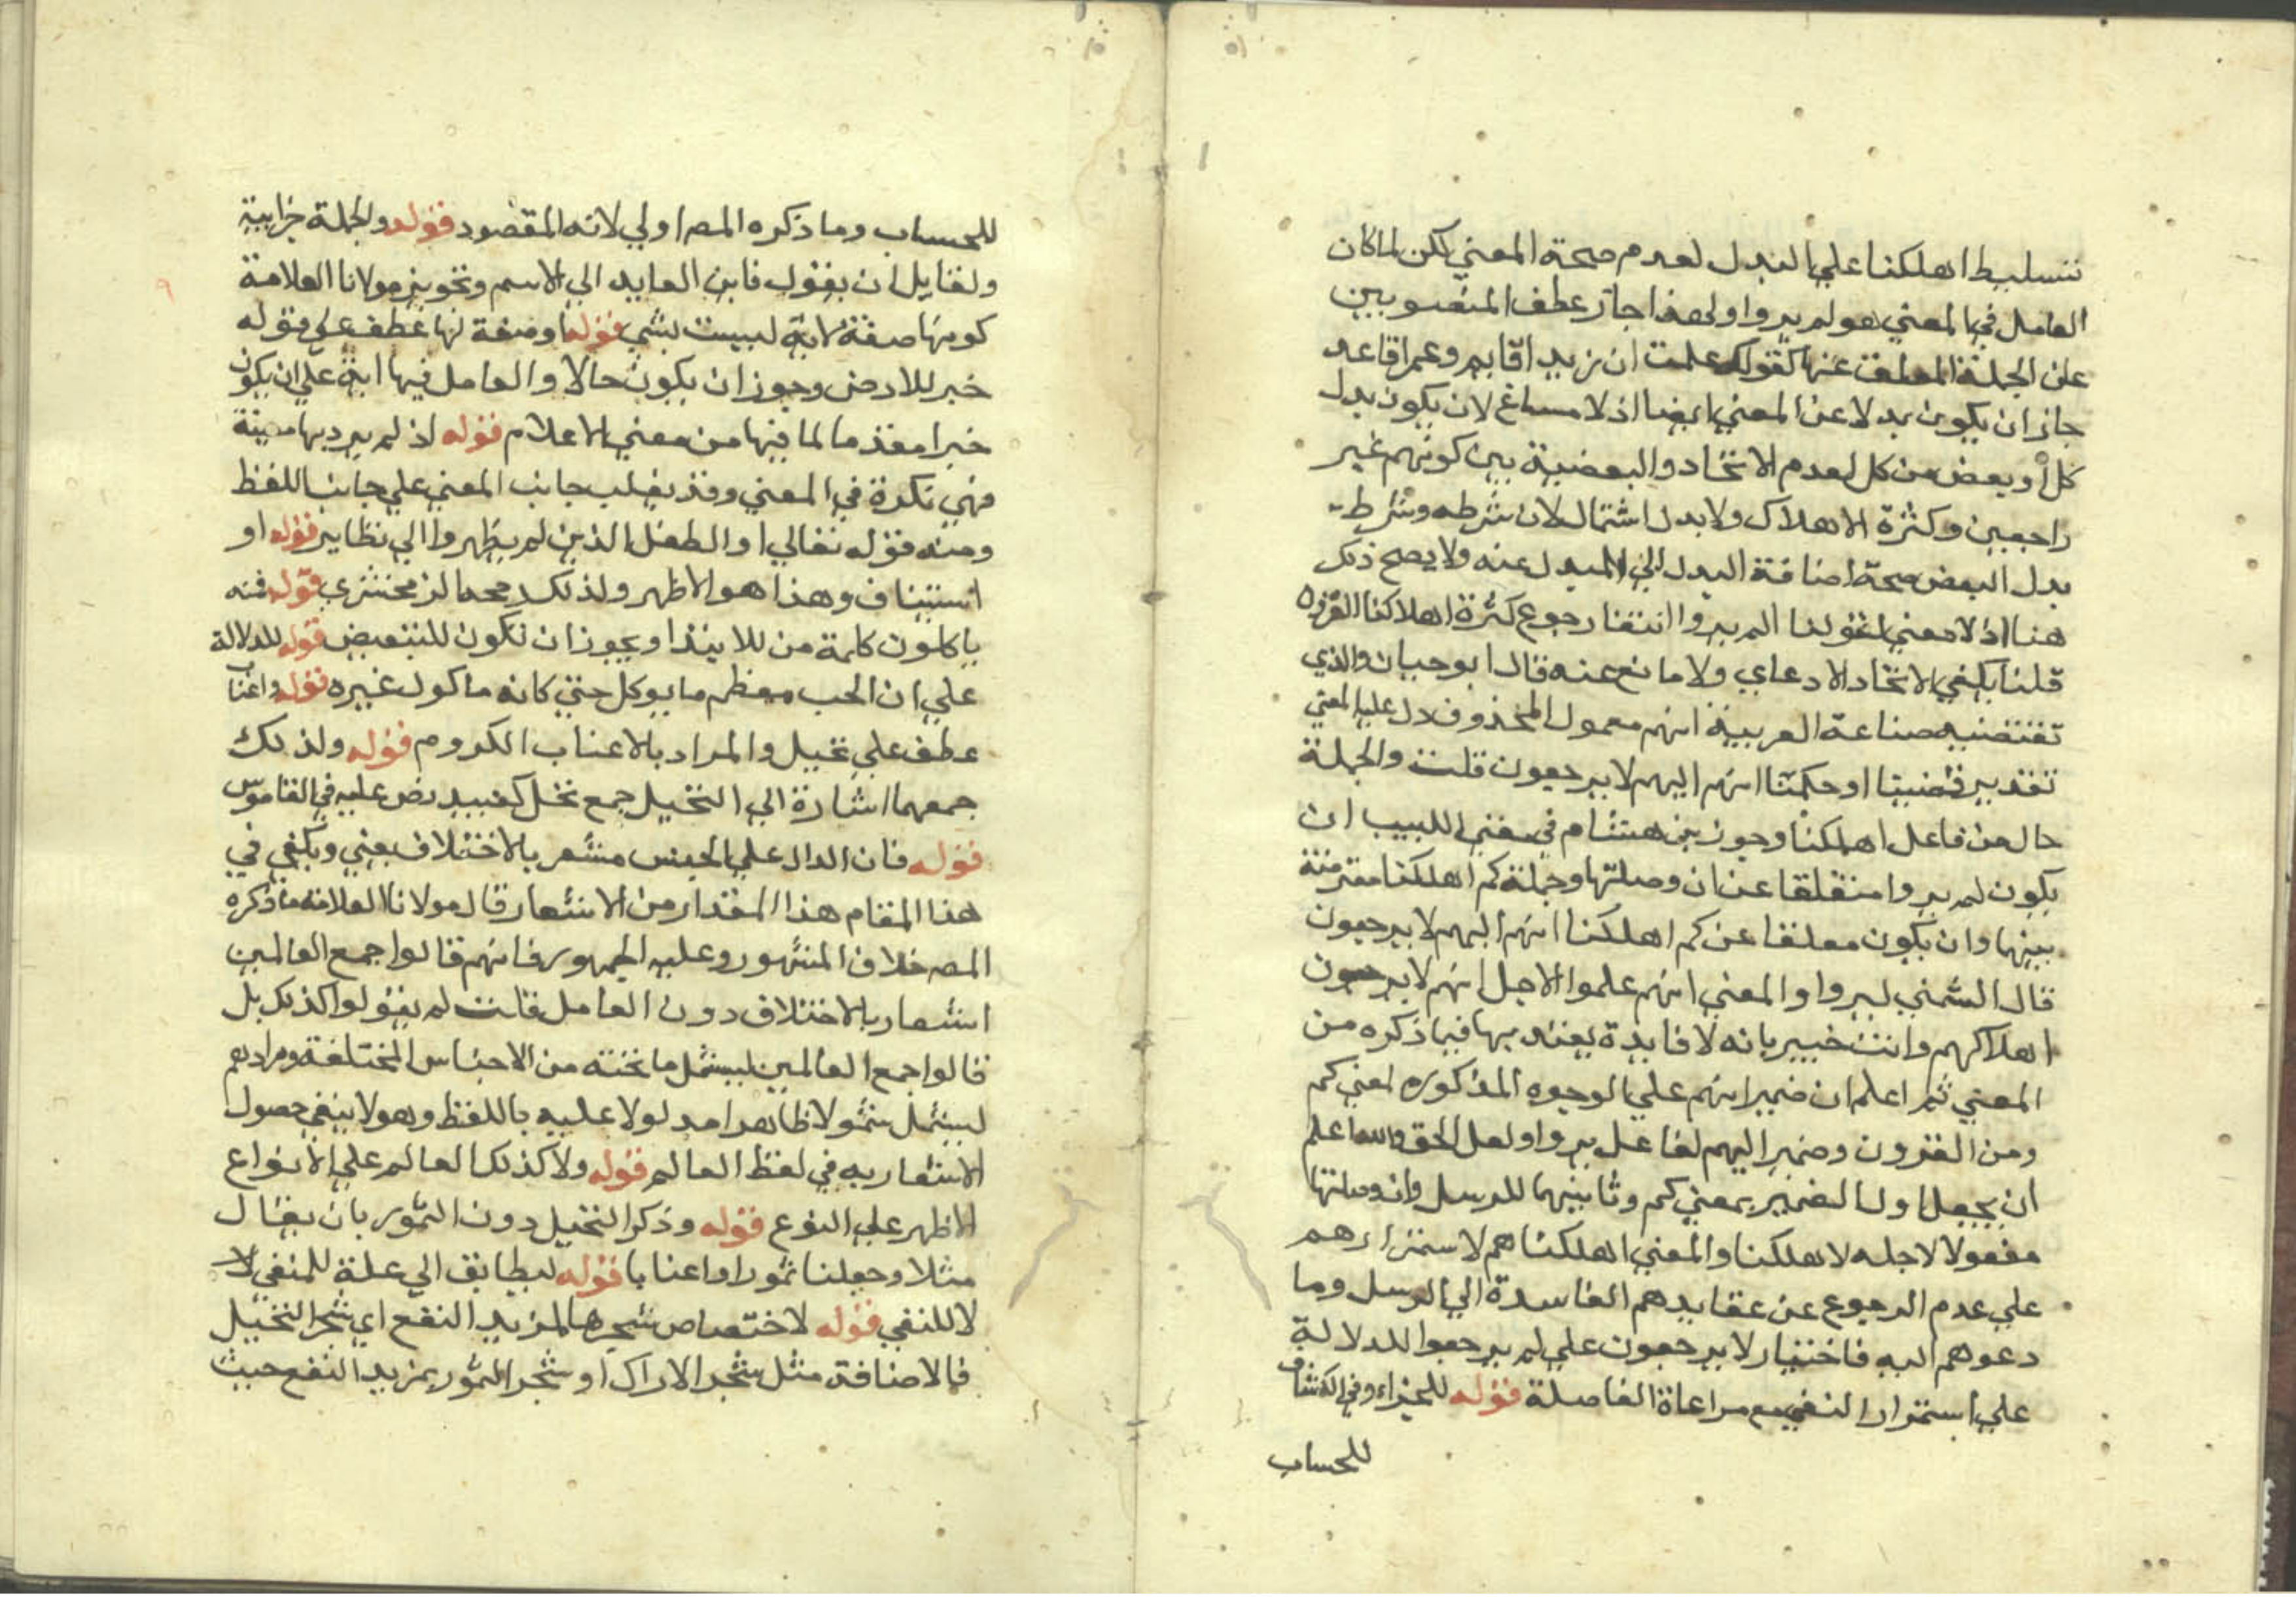 تتسليط اهلكنا علي البدل لعدم صحة المعني لكن لما كان
العامل في المعني هو لم يروا ولهذا جاز عطف المنصوبين
علي الجملة المعلقة عنها كقولك علمت ان زيد اقايم وعمرا قاعد
جاز ان يكون بدلا عن المعني ايضا اذ لا مساغ لان يكون بدل
كل او بعض من كل لعدم الاتحاد والبعضية بين كونهم غير
راجعين وكثرة الاهلاك ولا بدل اشتمال لان شرطه وشرط
بدل البعض صحة اضافة البدل الي المبدل عنه ولا يصح ذلك
هنا اذ لا معني لقولنا الم يروا انتفا رجوع كثرة اهلاكنا القرون
قلنا يكفي الاتحاد الادعاي ولا مانع عنه قال ابو حيان والذي
تقتضيه صناعة العربية انهم معمول المحذوف دل عليه المعني
تقديره قضينا او حكمنا انهم اليهم لا يرجعون قلت والجملة
حال من فاعل اهلكنا وجوز بن هشام في مغني اللبيب ان
يكون لم يروا متعلقا عن ان وصلتها وجملة كم اهلكنا معترضة
بينهما وان يكون معلقا عن كم اهلكنا انهم اليهم لا يرجعون
قال الشمني ليروا والمعني انهم علموا لاجل انهم لا يرجعون
اهلاكهم وانت خبير بانه لا فايدة يعتد بها فيما ذكره من
المعني ثم اعلم ان ضمير انهم علي الوجوه المذكورة لمعني كم
ومن القرون وضمير اليهم لفاعل يروا ولعل الحق والله اعلم
ان يجعل اول الضمير بمعني كم وثانيهما للرسل وان وصلتها
مفعولا لاجله لاهلكنا والمعني اهلكناهم لاستمرارهم
علي عدم الرجوع عن عقايدهم الفاسدة الي الرسل وما
دعوهم اليه فاختيار لا يرجعون علي لم يرجعوا للدلالة
علي استمرار النفي مع مراعاة الفاصلة قوله للجزاء وفي الكشاف
للحساب
للحساب وما ذكره المص اولي لانه المقصود قوله والجملة خبر اية
ولقايل ان يقول فاين العايد الي الاسم وتجويز مولانا العلامة
كونها صفة لاية ليست بشي قوله او صفة لها عطف علي قوله
خبر للارض وجوز ان يكون حالا والعامل فيها اية علي ان يكون
خبرا مقدما لما فيها من معني الاعلام قوله اذ لم يرد بها معينة
فهي نكرة في المعني وقد يغلب جانب المعني علي جانب اللفظ
ومنه قوله تعالي او الطفل الذين لم يظهروا الي نظاير قوله او
استيناف وهذا هو الاظهر ولذلك رجحه الزمخشري قوله فنه
ياكلون كلمة من للابتدا ويجوز ان تكون للتبعيض قوله للدلالة
علي ان الحب معظم ما يوكل حتي كانه ماكول غيره قوله واعناب
عطف علي نخيل والمراد بالاعناب الكروم قوله ولذلك
جمعهما اشارة الي النخيل جمع نخل كعبيد نص عليه في القاموس
قوله فان الدال علي الجنس مشعر بالاختلاف يعني ويكفي في
هذا المقام هذا المقدار من الاشعار قال مولانا العلامة ما ذكره
المص خلاف المشهور وعليه الجمهور فانهم قالوا جمع العالمين
اشعار بالاختلاف دون العامل قلت لم يقولوا كذلك بل
قالوا جمع العالمين ليشمل ما تحته من الاجناس المختلفة ومرادهم
ليشمل شمولا ظاهرا مدلولا عليه باللفظ وهو لا ينفي حصول
الاشعار به في لفظ العالم قوله ولا كذلك العالم علي الانواع
الاظهر علي النوع قوله وذكر النخيل دون التمور بان يقال
مثلا وجعلنا تمورا واعنابا قوله ليطابق الي علة للمنفي لا
لا للنفي قوله لاختصاص شجرها لمزيد النفع اي شجر النخيل
فالاضافة مثل شجر الاراك او شجر التمور بمزيد النفع حيث